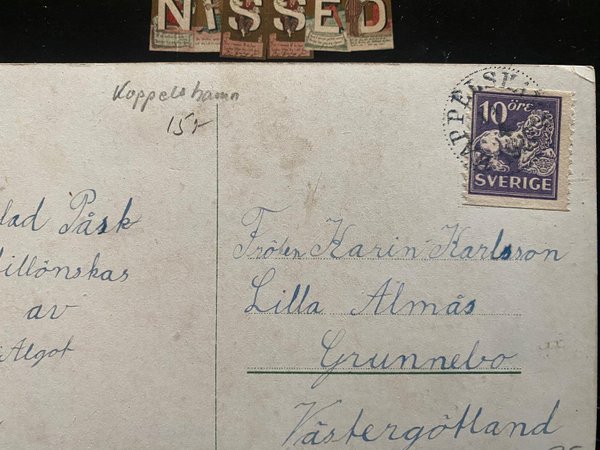 NISSED
Koppelshamn
15:-
lad Påsk
illönskas
av
Algot
KAPPELSHA
10 ÖRE
SVERIGE
Fröken Karin Karlsson
Lilla Almås
Grunnebo
Västergötland